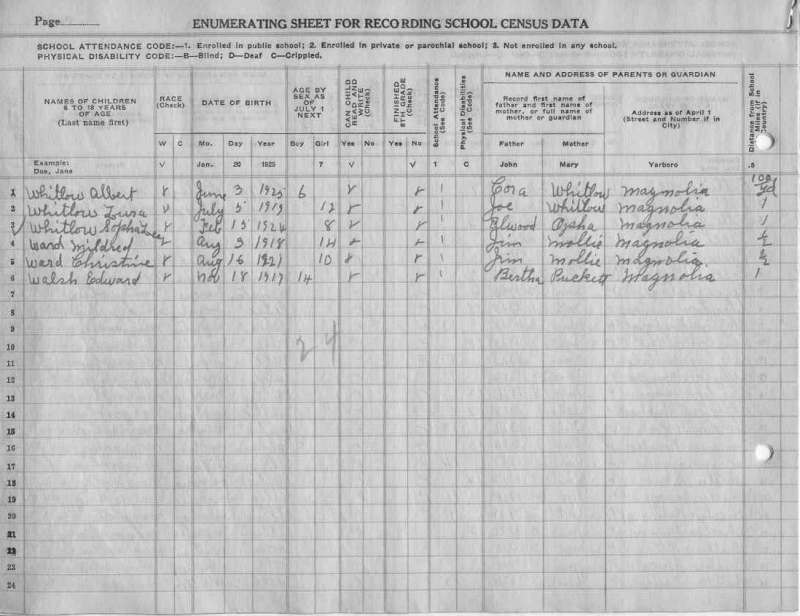 Page
ENUMERATING SHEET FOR RECORDING SCHOOL CENSUS DATA
SCHOOL ATTENDANCE CODE:—1. Enrolled in public school; 2. Enrolled in private or parochial school; 3. Not enrolled in any school.
PHYSICAL DISABILITY CODE:—B—Blind; D—Deaf C—Crippled.
NAMES OF CHILDREN 6 TO 18 YEARS OF AGE (Last name first) RACE (Check) DATE OF BIRTH AGE BY SEX AS OF JULY 1 NEXT CAN CHILD READ AND WRITE (Check) FINISHED 8TH GRADE (Check) School Attendance (See Code) Physical Disabilities (See Code) NAME AND ADDRESS OF PARENTS OR GUARDIAN Distance from School Miles (If in Country)
Record first name of father and first name of mother, or full name of mother or guardian Address as of April 1 (Street and Number if in City)
W C Mo. Day Year Boy Girl Yes No Yes No Father Mother
Example: Doe, Jane V Jan. 20 1925 7 V V 1 C John Mary Yarboro .5
1 Whitlow Albert June 3 1925 6 1 Cora Whitlow Magnolia 100 yd
2 Whitlow July 5 1919 12 1 Joe Whitlow Magnolia 1
3 Whitlow Feb 15 1924 8 1 Elwood Magnolia 1
4 Ward Mildred Aug 3 1918 14 1 Jim Mollie Magnolia ½
5 Ward Christine Aug 16 1921 10 1 Jim Mollie Magnolia. ½
6 Walsh Edward Nov 18 1917 14 1 Bertha Puckett Magnolia 1
7
8
9
10 24
11
12
13
14
15
16
17
18
19
20
21
22
23
24